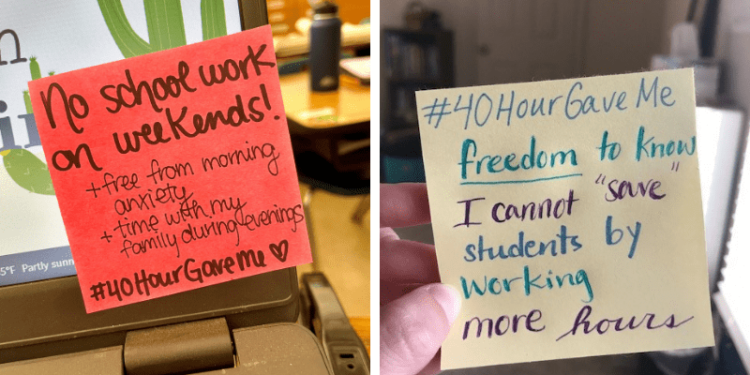 No school work
on weekends!
+free from morning
anxiety
+time with my
family during evenings
#40HourGaveMe ♡
5°F Partly sunn
#40HourGaveMe
freedom to know
I cannot "save"
students by
working
more hours